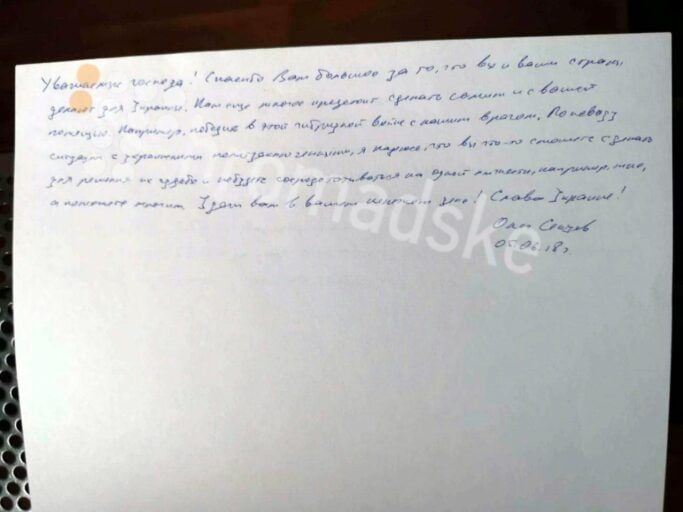 Уважаемые господа! Спасибо Вам большое за то, что вы и ваши страны
делают для Украины. Нам еще многое предстоит сделать самим и с вашей
помощью. Например, победить в этой гибридной войне с нашим врагом. По поводу
ситуации с украинскими политзаключенными, я надеюсь, что вы что-то сможете сделать
для решения не одной личности, например, мне,
а поможете многим. Удачи вам в вашем нелегком деле! Слава Украине!
Олег Сенцов
05.06.18 г.
hromadske